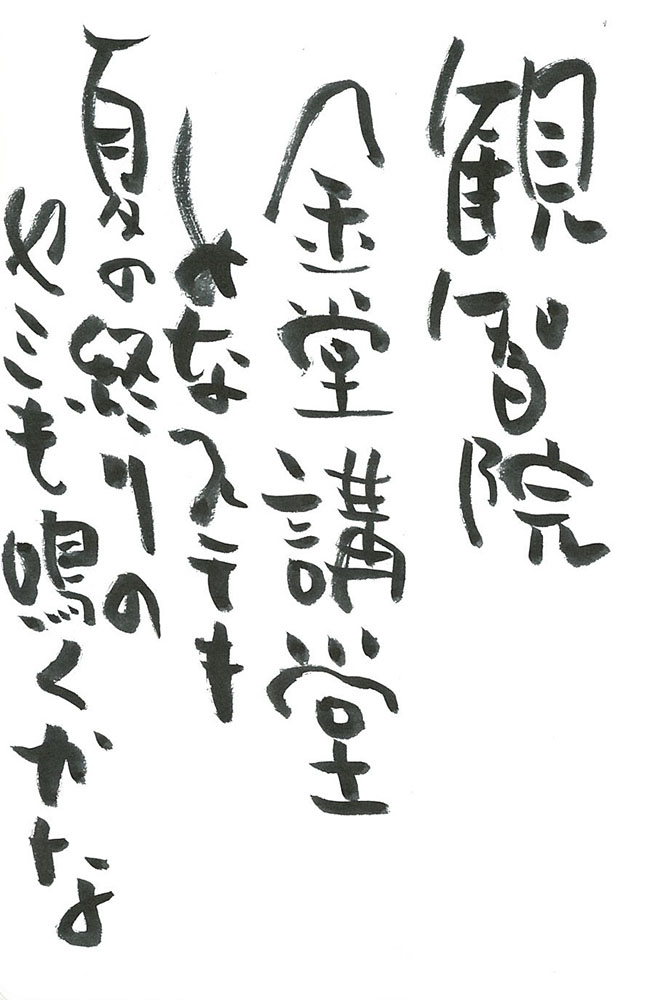 観智院
金堂講堂
みなステキ
夏の終りの
せミも鳴くかな